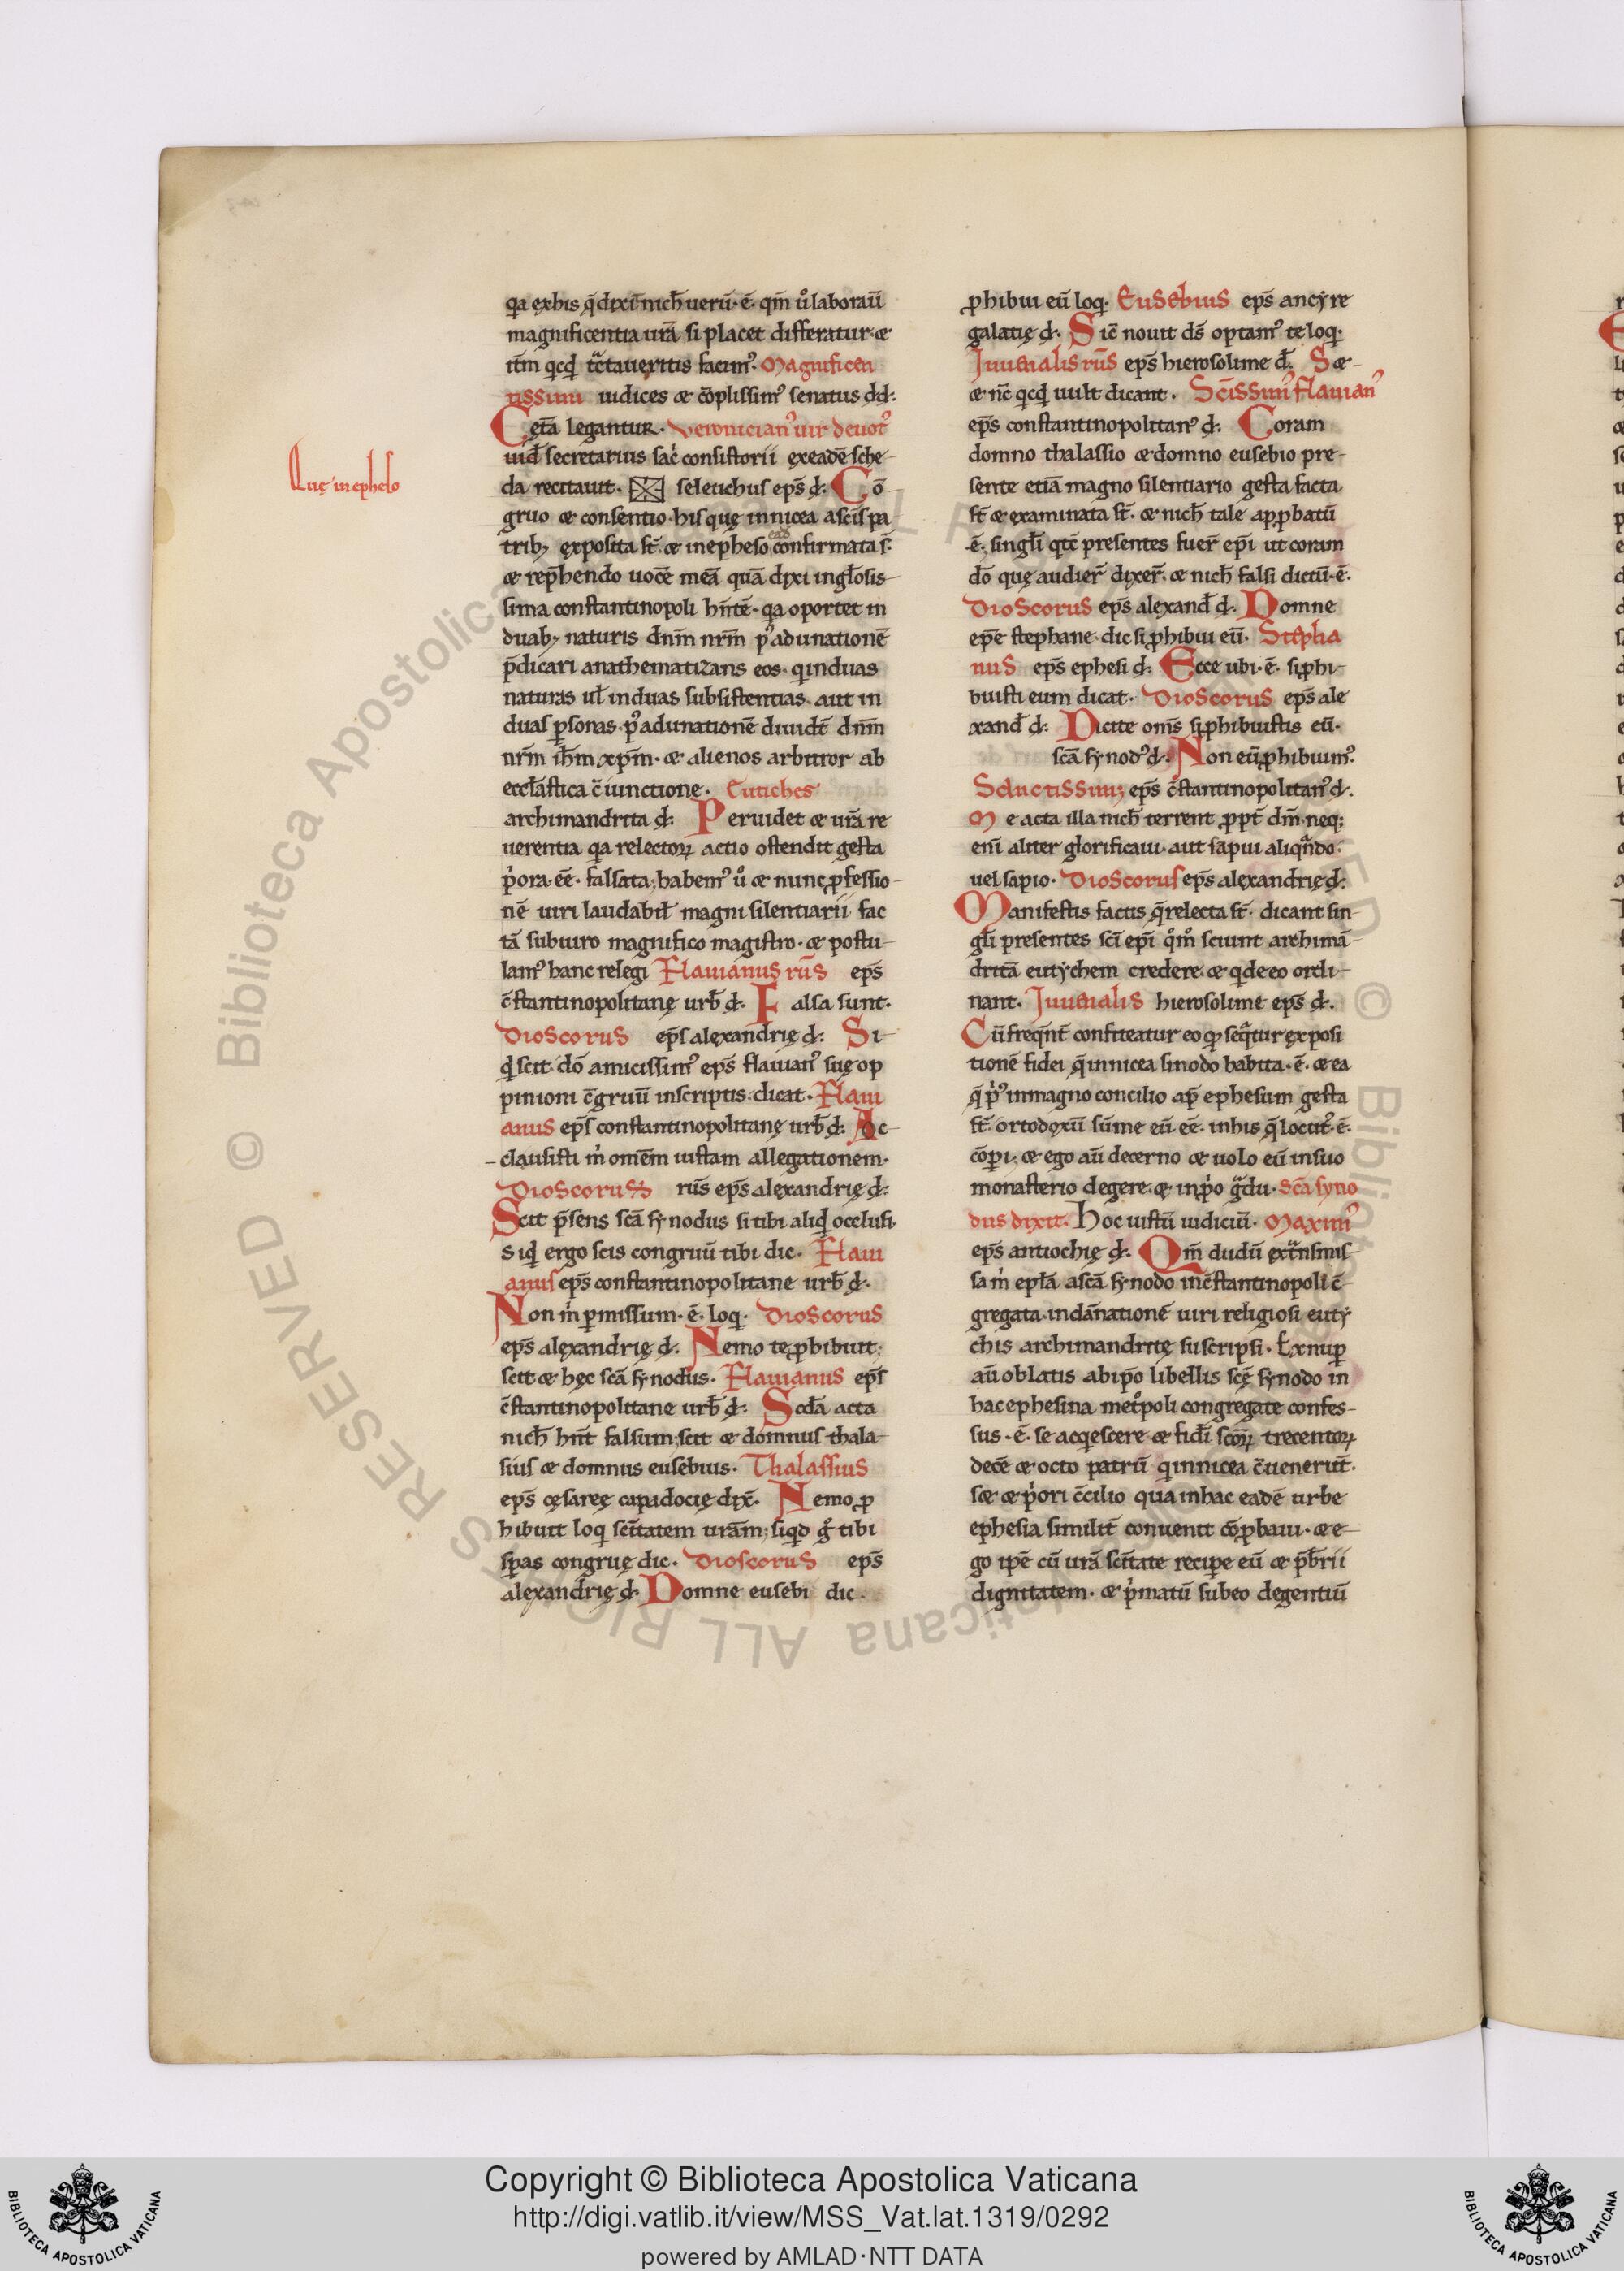 qa exhis q̄ dixi nich̄ uerū·ē· qm̄ ů laborauı̄
magnificentia urā si placet differatur æ
itm̄ qcqd̄ tc̄tauęritis facim᾽· Magnificen
tissimi iudices æ cōplissim᾽ senatus dd̄:
Cętā legantur. Veronician᾽ uir deuot᾽
uid̄ secretarius sac̄ consistorii exeadē sche-
Quę in epheso
da recitauit. seleuchus ep̄s đ: Cō
gruo æ consentio his quę innicea ascīs pa
trib; exposita st̄ æ inepheso ead confirmata s̄:
æ rep̄hendo uocē meā quā dixi inglosis-
sima constantinopoli hn̄tē· qa oportet in
duab; naturis dnm̄ nrm̄ p᾽ adunationē
p̄dicari anathematizans eos· qinduas
naturas uł induas subsistentias· aut in
duas ꝑsonas p᾽ adunationē diuidt̄ dnm̄
nrm̄ ih̄m xp̄m· æ alienos arbitror ab
eccłastica c̄iunctione· Eutiches
archimandrita đ: Peruidet æ urā re
uerentia qa relectoꝝ actio ostendit gesta
p̍ora·eē· falsata; habem᾽ ů æ nunc ꝓfessio-
nē uiri laudabił magni silentiarii fac
tā subuiro magnifico magistro· æ postu-
lam᾽ hanc relegi Flauianus rūs ep̄s
c̄stantinopolitanę urb̄ đ. Falsa sunt.
Dioscorus ep̄s alexandrię đ: Si-
qd̄ scit dō amicissim᾽ ep̄s flauian᾽ suę op
pinioni c̄gruū inscriptis dicat· Flaui
anus ep̄s constantinopolitanę urb̄ đ. Oc-
clausisti m̍ omēm iustam allegationem·
Dioscorus rūs ep̄s alexandrię đ:
Scit p̄sens scā synodus si tibi aliqd̄ occlusi·
Siqd̄ ergo scis congruū tibi dic· Flaui
anus ep̄s constantinopolitane urb̄ đ·
Non m̍ ꝑmissum·ē· loq· Dioscorus
ep̄s alexandrię đ. Nemo te ꝓhibuit;
scit æ hęc scā synodus· Flauianus ep̄s
c̄stantinopolitane urb̄ đ: Scdā acta
nich̄ hn̄t falsum; scit æ domnus thala-
sius æ domnus eusebius· Thalassius
ep̄s cęsaręe capadocię dix̄· Nemo ꝓ
hibuit loq scītatem urām; siqd g̊ tibi
sp̄as congruę dic· Dioscorus ep̄s
alexandrię đ· Domne eusebi dic·
ꝓhibui eū loq· Eusebius ep̄s ancyre
galatię đ· Sic̄ nouit ds̄ optam᾽ te loq·
Juuenalis rūs ep̄s hierosolime đ. Sæ-
æ nc̄ qcqd̄ uult dicant· Scīssim᾽ flauian᾽
ep̄s constantinopolitan᾽ đ. Coram
domno thalassio æ domno eusebio pre-
sente etiā magno silentiario gesta facta
st̄ æ examinata st̄· æ nich̄ tale apꝓbatū
·ē· singłi qtc̄ presentes fuer̄ ep̄i ut coram
dō quę audier̄ dixer̄· æ nich̄ falsi dictū·ē·
Dioscorus ep̄s alexand̄ đ. Domne
ep̄e stephane· dic si ꝓhibui eū· Stepha
nus ep̄s ephesi đ· Ecce ubi·ē· si ꝓhi-
buisti eum dicat· Dioscorus ep̄s ale
xand̄ đ· Dicite om̄s si ꝓhibuistis eū·
scā synod᾽ đ· Non eū ꝓhibuim᾽
ep̄s c̄stantinopolitan᾽ đ.
Me acta illa nich̄ terrent ꝓpt̄ dm̄· neq;
enī aliter glorificaui· aut sapui aliqn̄do·
uel sapio· Dioscorus ep̄s alexandrię đ:
Manifestis factis q̄relecta st̄· dicant sin-
głi presentes scī ep̄i q̊m᾽ sciunt archimā-
dritā eutychem credere· æ qdeeo ordi-
nant. Juuenalis hierosolime ep̄s đ·
Cū freqn̄t̄ confiteatur eo qđ seqtur exposi
tionē fidei q̄innicea sinodo habita·ē· æ ea
q̄ p̍᾽ inmagno concilio ap̄ ephesum gesta
st̄· ortodoxū sūme eū eē· inhis q̄ locut᾽·ē·
cōꝑi· æ ego aū decerno æ uolo eū insuo
monasterio degere· æ inp̍o g̃du· Scā syno
dus dixit. Hoc iustū iudiciū· Maxim᾽
ep̄s antiochię đ· Qm̄ dudū extn̄smis-
sam̍ epłā ascā synodo inc̄stantinopoli c̄-
gregata· indānationē uiri religiosi euty
chis archimandritę suscripsi· Exnuꝑ
aū oblatis abip̄o libellis scę̄ synodo in
hac ephesina met̊poli congregate confes-
sus·ē· se acqescere æ fidī scōꝝ trecentoꝝ
decē æ octo patrū qinnicea c̄uenerūt·
sæ æ p̍ori c̄cilio qua inhac eadē urbe
ephesia similit̄ conuenit cōꝓbaui· æ e-
go ip̄e cū urā scītate recipe eū æ p̄bīrii
dignitatem· æ p̍matū subeo degentiū
Copyright © Biblioteca Apostolica Vaticana
http://digi.vatlib.it/view/MSS_Vat.lat.1319/0292
powered by AMLAD·NTT DATA
BIBLIOTECA APOSTOLICA VATICANA
BIBLIOTECA APOSTOLICA VATICANA
© Biblioteca Apostolica Vaticana ALL RIGHTS RESERVED